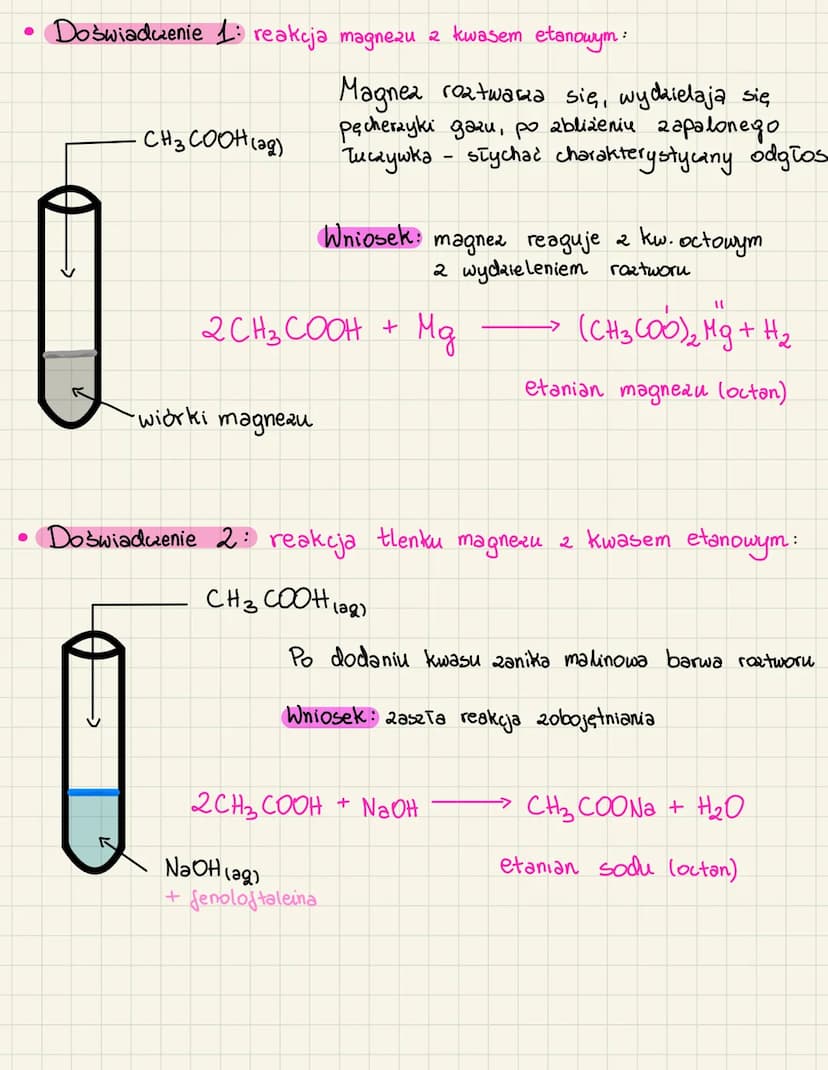 • Doświadczenie 1: reakcja magnezu z kwasem etanowym:
Magnez roztwarza się, wydzielają się
CH₃COOH(aq)
pęcherzyki gazu, po zbliżeniu zapalonego
łuczywka - słychać charakterystyczny odgłos
Wniosek: magnez reaguje z kw. octowym
z wydzieleniem roztworu
2CH₃COOH + Mg ⟶ (CH₃COO)₂Mg + H₂
I II
etanian magnezu (octan)
wiórki magnezu
• Doświadczenie 2: reakcja tlenku magnezu z kwasem etanowym:
CH₃COOH(aq)
Po dodaniu kwasu zanika malinowa barwa roztworu
Wniosek: zaszła reakcja zobojętniania
2CH₃COOH + NaOH ⟶ CH₃COONa + H₂O
NaOH(aq)
etanian sodu (octan)
+ fenoloftaleina